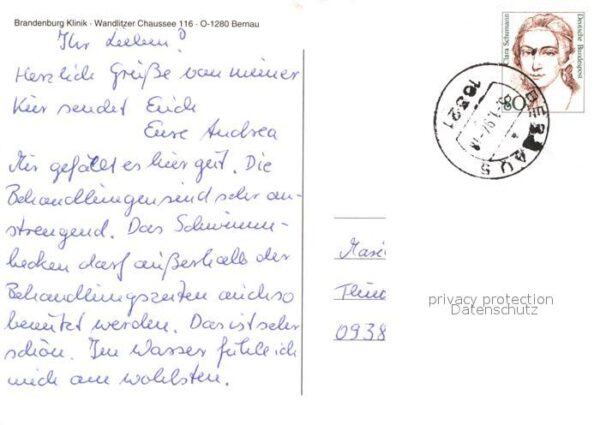 Brandenburg Klinik · Wandlitzer Chaussee 116 · O-1280 Bernau
Ihr Lieben!
Herzlich Grüße von meiner
Kur sendet Euch
Eure Andrea
Mir gefällt es hier gut. Die
Behandlungen sind sehr an-
strengend. Das Schwimm-
becken darf außerhalb der
Behandlungszeiten auch so
benutzt werden. Das ist sehr
schön. Im Wasser fühle ich
mich am wohlsten.
Clara Schumann
Deutsche Bundespost
80
BER
AU 5
1631
0938
privacy protection
Datenschutz